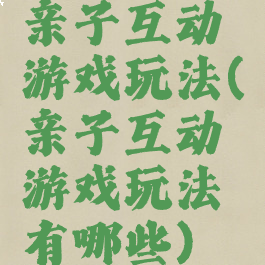 亲子互动
游戏玩法(
亲子互动
游戏玩法
有哪些)